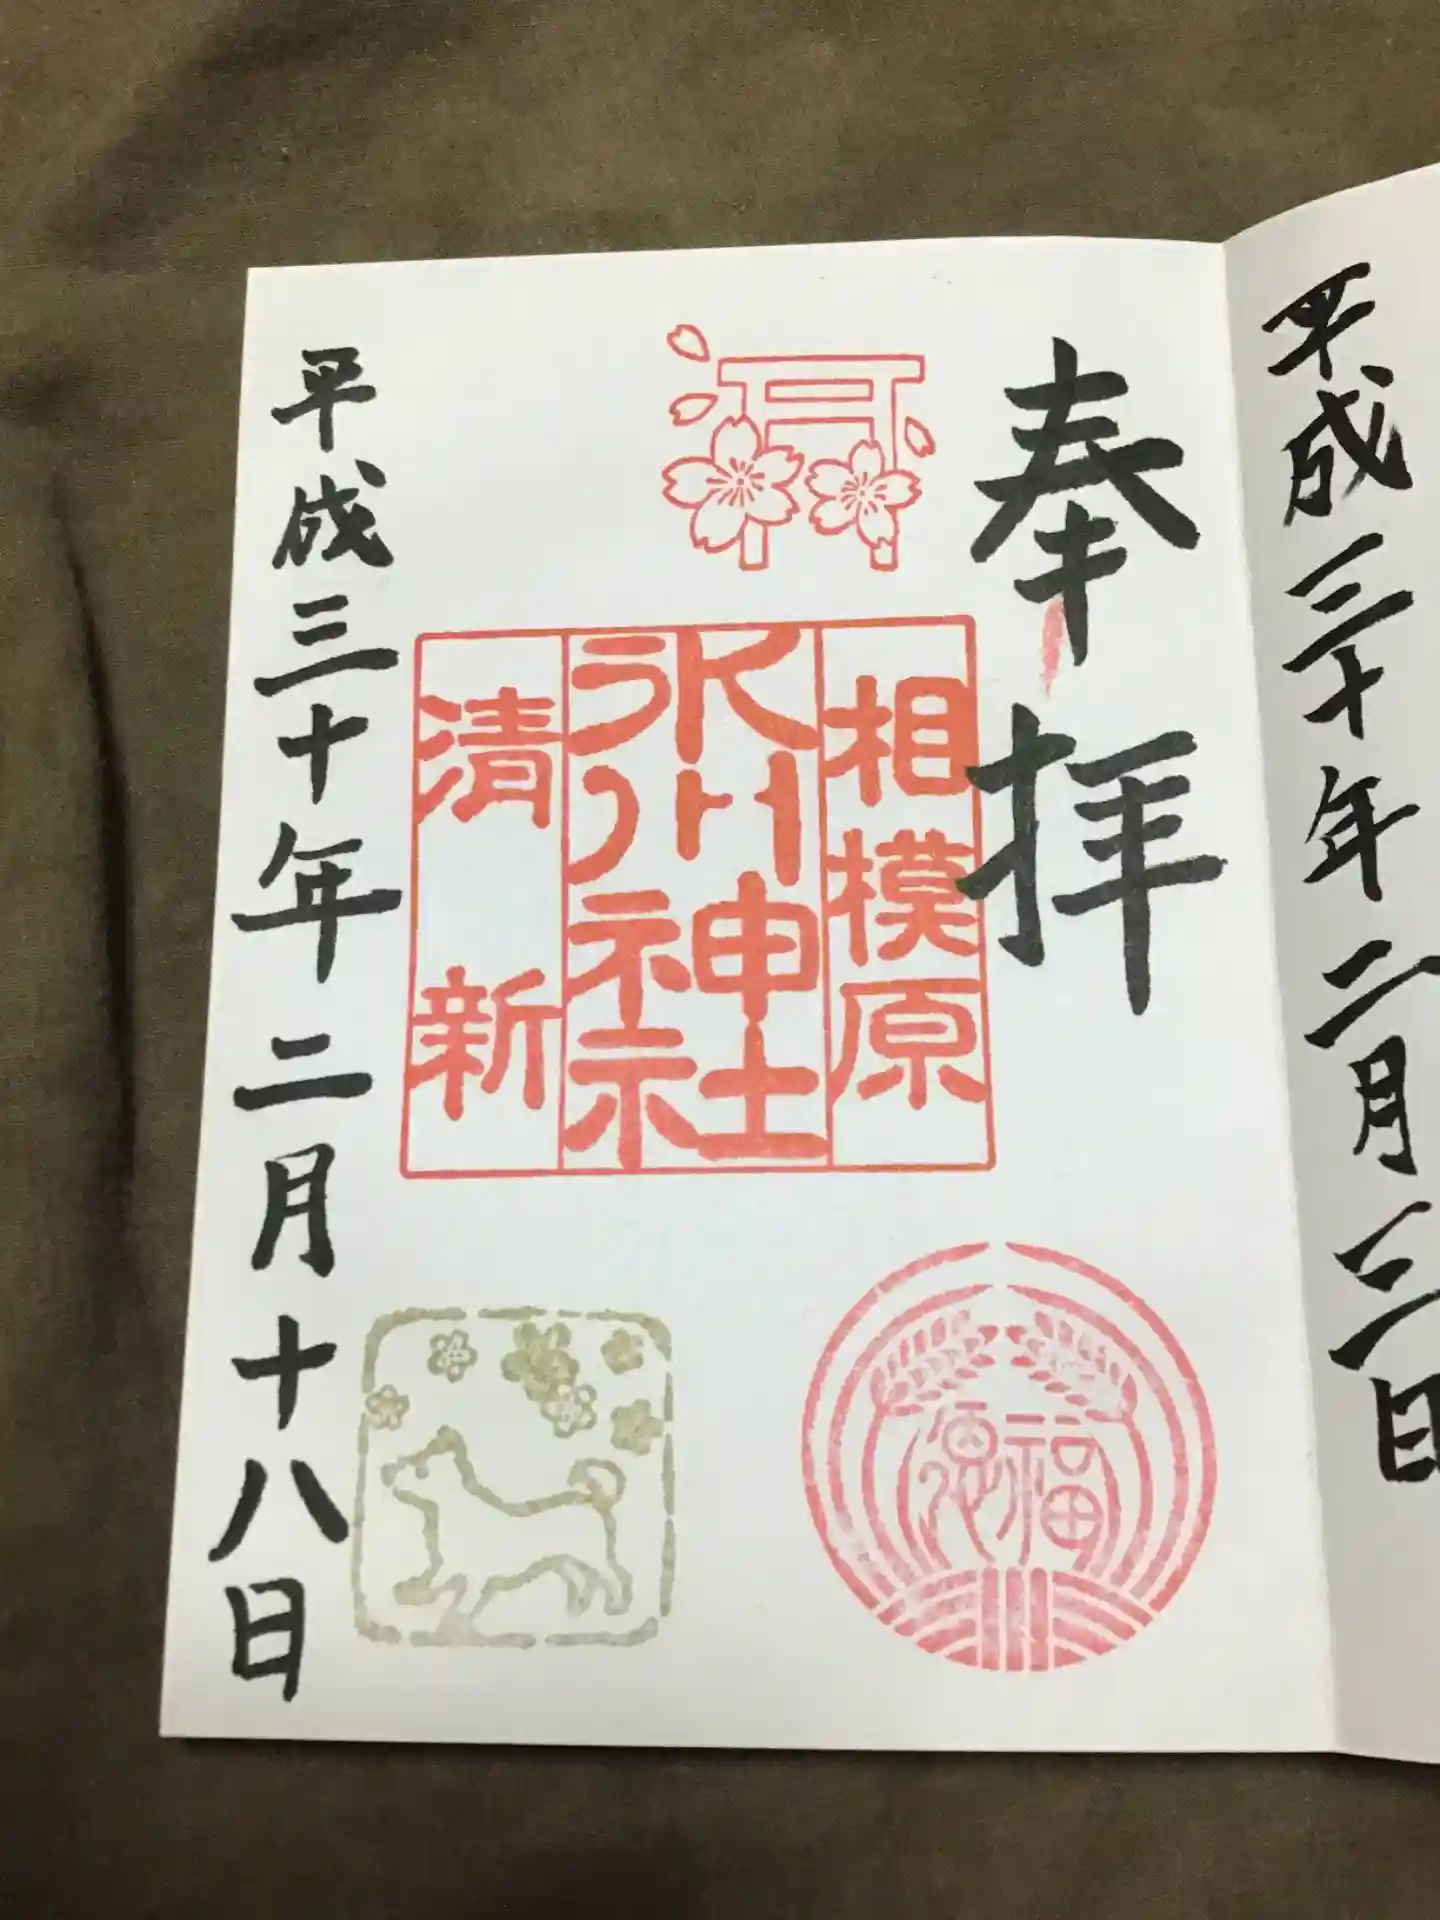 平成三十年二月三日
奉拝
相模原
氷川神社
清新
福
平成三十年二月十八日